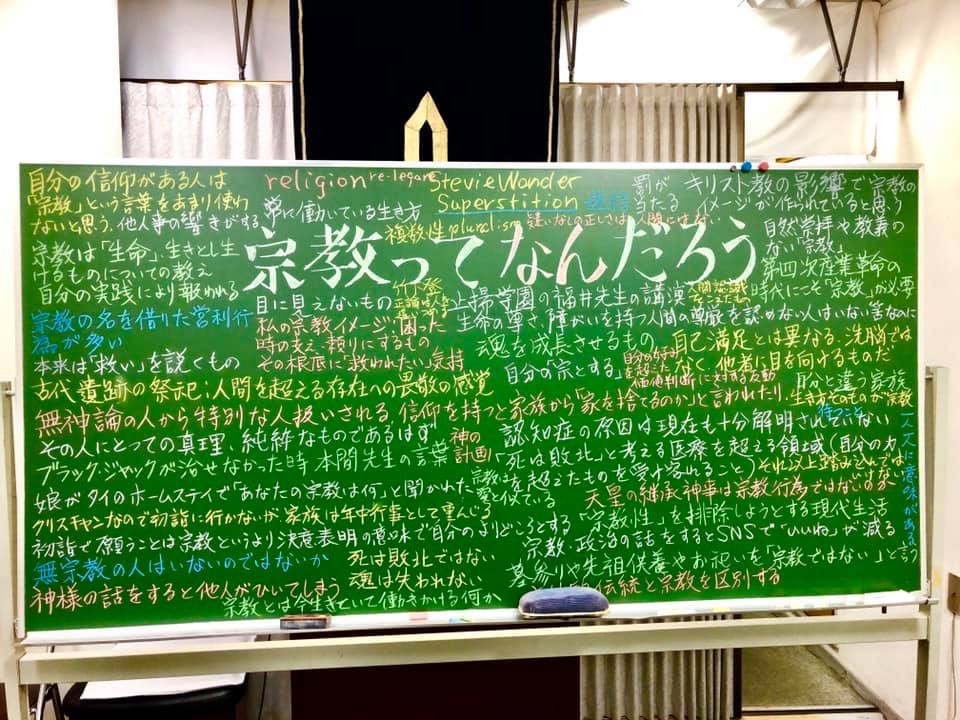 自分の信仰がある人は
「宗教」という言葉をあまり使わ
ないと思う。他人事の響きがする
宗教は「生命」、生きとし生
けるものについての教え
自分の実践により報われる
宗教の名を借りた営利行
為が多い
本来は「救い」を説くもの
religion re-legare
常に働いている生き方
Stevie Wonder
Superstition 迷信
複数性 pluralism
疑いなしの正しさは人間にはない
罰が
当たる
キリスト教の影響で宗教の
イメージが作られていると思う
自然崇拝や教義の
ない「宗教」
第四次産業革命の
時代にこそ「宗教」が必要
宗教ってなんだろう
目に見えないもの
私の宗教イメージ:困った
時の支え・頼りにするもの
その根底に「救われたい」気持
止揚学園の福井先生の講演
生命の尊さ、障がいを持つ人間の尊厳を認めない人はいない筈なのに
魂を成長させるもの
自分の宗とする
価値判断に対する反動
自己満足とは異なる。洗脳では
なく、他者に目を向けるものだ
自分と違う家族
生き方そのものが宗教
古代遺跡の祭祀:人間を超える存在への畏敬の感覚
無神論の人から特別な人扱いされる。信仰を持つと家族から「家を捨てるのか」と言われたり、
その人にとっての真理、純粋なものであるはず
神の
計画
認知症の原因は現在も十分解明されていない
ブラック・ジャックが治せなかった時 本間先生の言葉
「死は敗北」と考える医療を超える領域(自分の力
を超えたものを受け容れること)
それ以上踏み込んでは
いけない
待つこと
一人一人に意味がある
娘がタイのホームステイで「あなたの宗教は何」と聞かれた
宗教は
愛と似ている
天皇の継承神事は宗教行為ではないのか
クリスチャンなので初詣に行かないが、家族は年中行事として重んじる
「宗教性」を排除しようとする現代生活
初詣で願うことは宗教というより決意表明の意味で自分のよりどころとする
宗教、政治の話をするとSNSで「いいね」が減る
無宗教の人はいないのではないか
死は敗北ではない
魂は失われない
墓参りや先祖供養やお祀いを「宗教ではない」と言う
神様の話をすると他人がひいてしまう
宗教とは今生きていて働きかける何か
伝統と宗教を区別する